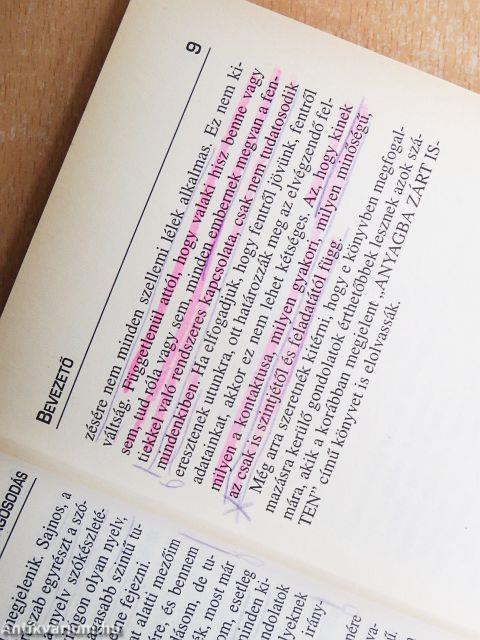 GOSODÁS
egjelenik. Sajnos, a
zak egyrészt a szó-
nyelv szókészleté-
gon olyan nyelv,
asabb szintű tu-
ne fejezni.
at alatti mezőim
ére, és bennem
lásom, de tu-
k, most már
om, esetleg
minden ki-
ondolatok
lyeknek
irány-
BEVEZETŐ
9
zésére nem minden szellemi lélek alkalmas. Ez nem ki-
váltság. Függetlenül attól, hogy valaki hisz benne vagy
sem, tud róla vagy sem, minden embernek megvan a fen-
tiekkel való rendszeres kapcsolata, csak nem tudatosodik
mindenkiben. Ha elfogadjuk, hogy fentről jövünk, fentről
eresztenek utunkra, ott határozzák meg az elvégzendő fel-
adatainkat, akkor ez nem lehet kétséges. Az, hogy kinek
milyen a kontaktusa, milyen gyakori, milyen minőségű,
az csak is szintjétől és feladatától függ.
Még arra szeretnék kitérni, hogy e könyvben megfogal-
mazásra kerülő gondolatok érthetőbbek lesznek azok szá-
mára, akik a korábban megjelent „ANYAGBA ZÁRT IS-
TEN” című könyvet is elolvassák.
Antikvarium.hu